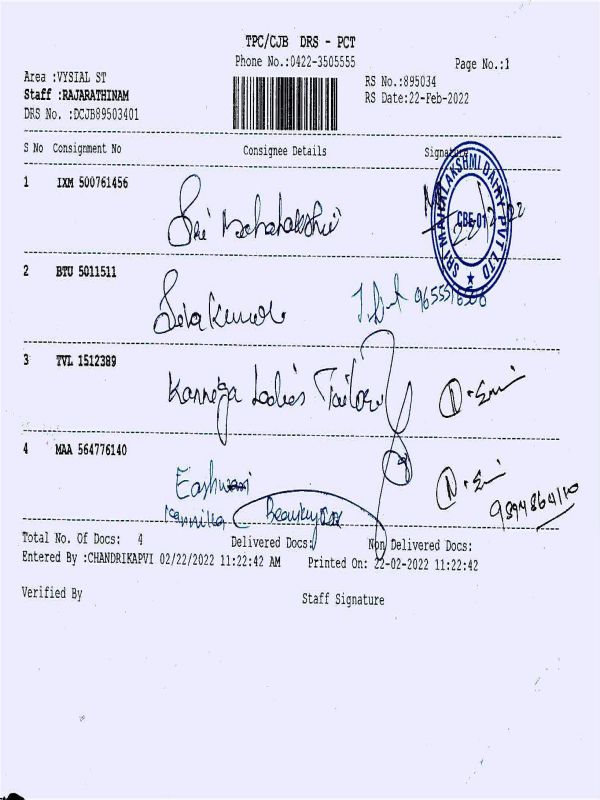 TPC/CJB DRS - PCT
Phone No.:0422-3505555
Page No.:1
Area :VYSIAL ST
RS No.:895034
Staff :RAJARATHINAM
RS Date:22-Feb-2022
DRS No. :DCJB89503401
S No Consignment No Consignee Details Signature
SRI MAHALAKSHMI DAIRY PVT LTD
CBE-01
1 IXM 500761456
Sri Mahalakshmi
2 BTU 5011511
Selva Kumar
3 TVL 1512389
Kannega Ladies Tailor
4 MAA 564776140
Eashwari
Kannika
Total No. Of Docs: 4 Delivered Docs: Non Delivered Docs:
Entered By :CHANDRIKAPVI 02/22/2022 11:22:42 AM Printed On: 22-02-2022 11:22:42
Verified By
Staff Signature